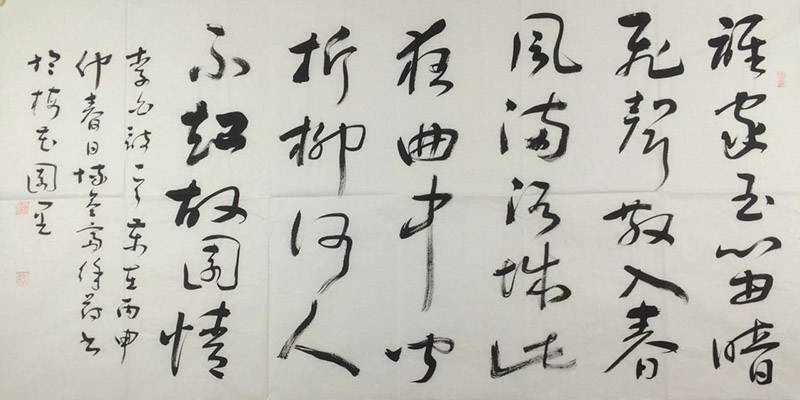 誰家玉笛暗
飛聲散入春
風滿洛城此
夜曲中聞
折柳何人
不起故園情
李白詩一首歲在丙申
仲春日
梅花園